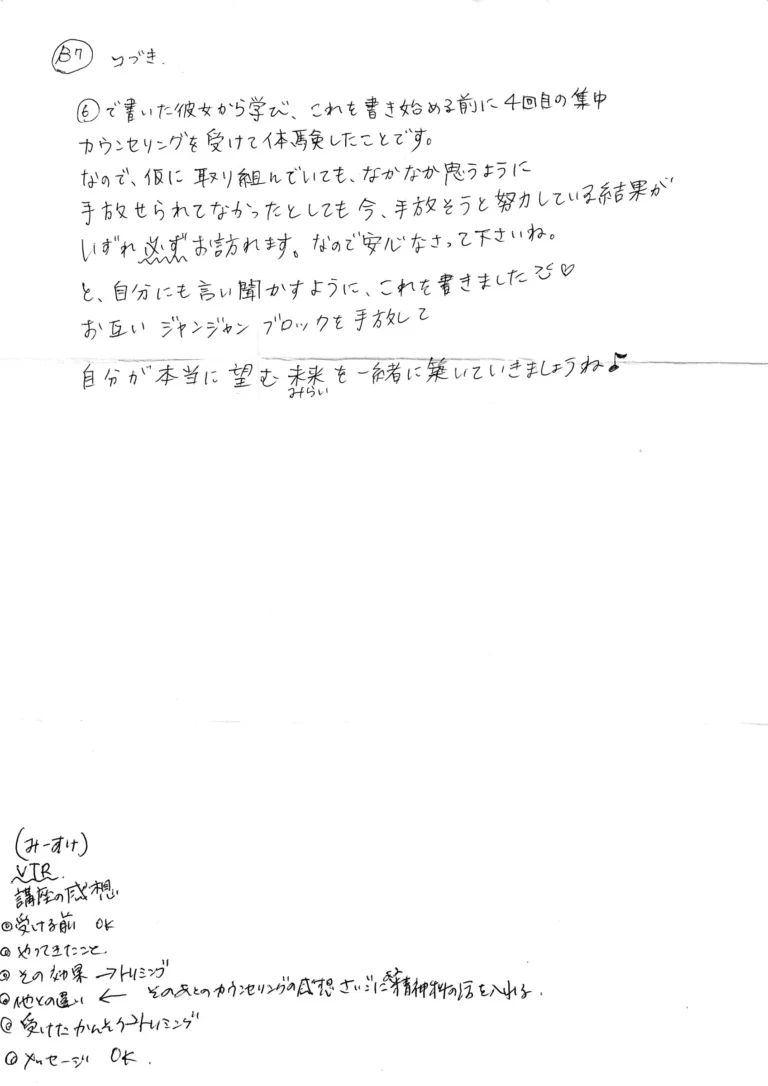 B7 つづき.
⑥で書いた彼女から学び、これを書き始める前に4回目の集中
カウンセリングを受けて体験したことです。
なので、仮に取り組んでいても、なかなか思うように
手放せられてなかったとしても今、手放そうと努力している結果が
いずれ必ずお訪れます。なので安心なさって下さいね。
と、自分にも言い聞かすように、これを書きました♡
お互いジャンジャンブロックを手放して
自分が本当に望む未来を一緒に築いていきましょうね♪
みらい
(みーすけ)
VTR.
講座の感想
受ける前 OK
やってきたこと.
その効果 →トリミング
他との違い ← そのあとのカウンセリングの感想さいごに精神科の話を入れる.
受けたかんそう→トリミング
メッセージ OK.